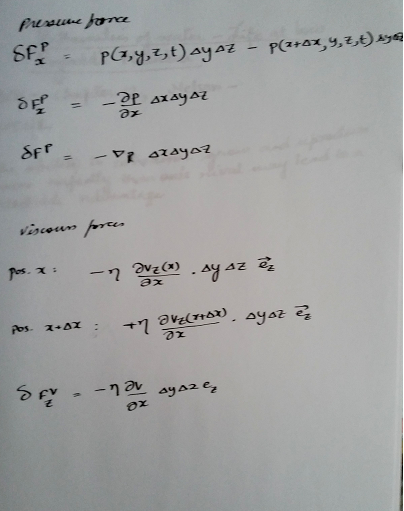 pressure force
δF_x^P = p(x,y,z,t) Δy Δz − p(x+Δx, y, z, t) Δy Δz
δF_x^P = − ∂p/∂x Δx Δy Δz
δF^P = − ∇p Δx Δy Δz
viscous forces
pos. x : − η ∂v_z(x)/∂x . Δy Δz e⃗_z
pos. x+Δx : + η ∂v_z(x+Δx)/∂x . Δy Δz e⃗_z
δF_z^v = − η ∂v/∂x Δy Δz e_z